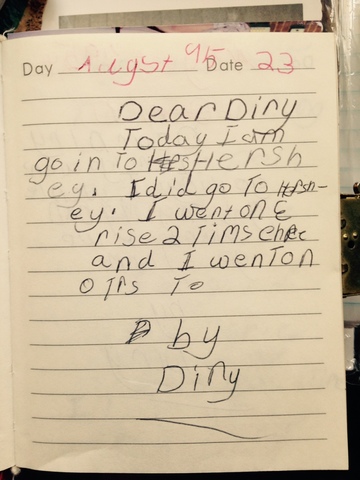 Day August 95 Date 23
Dear Diry
Today I am
go in To Hersh
ey. I did go To Hersh-
ey. I went one
rise 2 Tims
and I went on
OTRS To
by
Diry